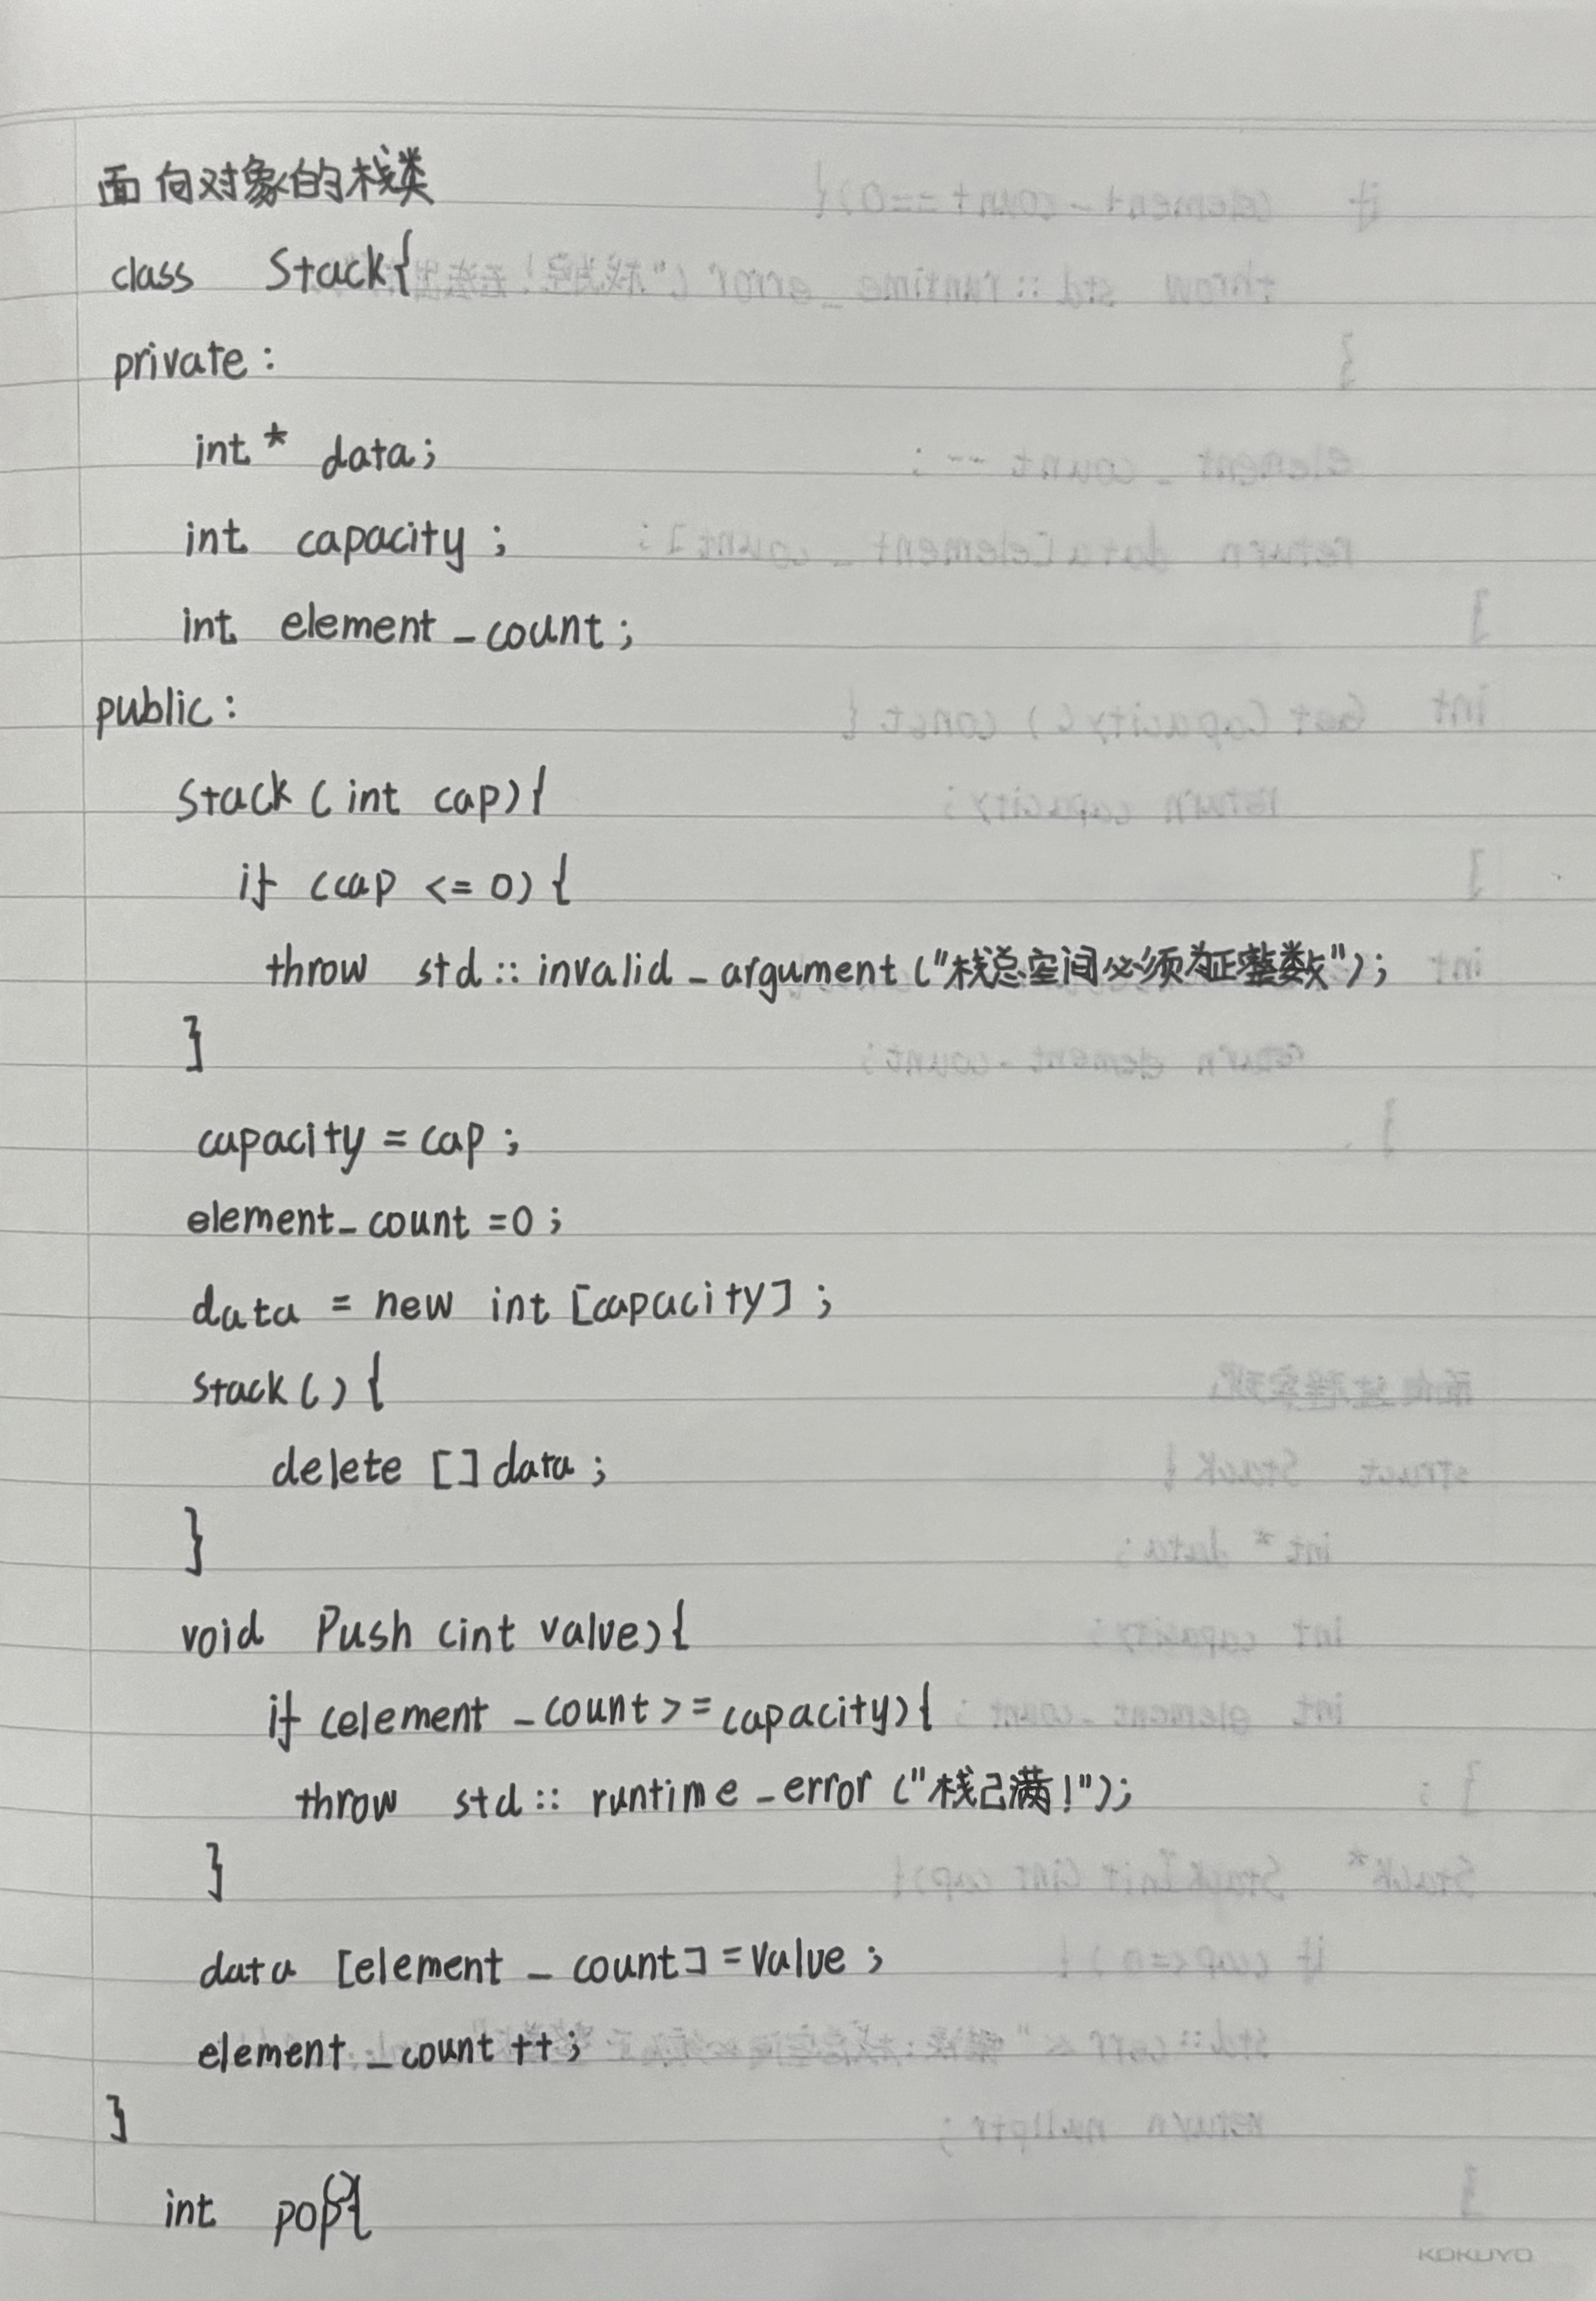 面向对象的栈类
class Stack{
private:
int* data;
int capacity;
int element_count;
public:
Stack(int cap){
if (cap <= 0){
throw std::invalid_argument("栈总空间必须为正整数");
}
capacity = cap;
element_count =0;
data = new int [capacity];
stack(){
delete []data;
}
void Push (int value){
if (element_count>=capacity){
throw std::runtime_error("栈己满!");
}
data [element_count]=value;
element_count ++;
}
int pop(){
KOKUYO